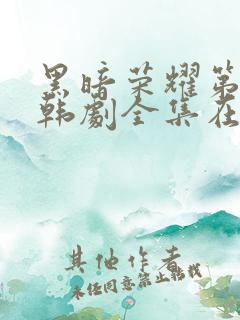 黑暗荣耀第
韩剧全集在
其他作者
未经同意禁止转载